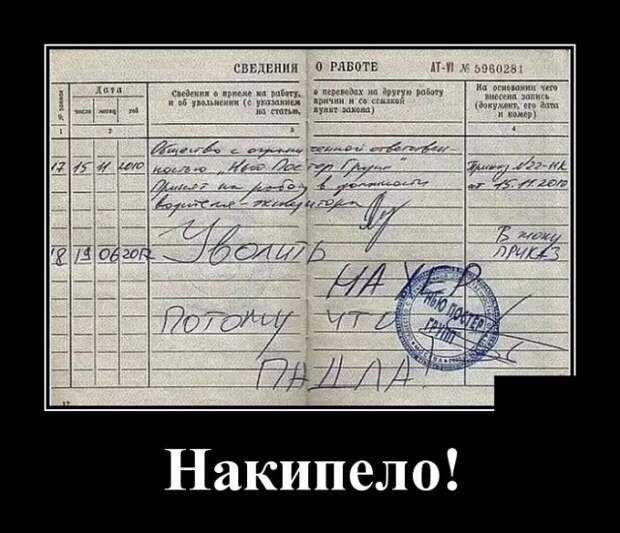 СВЕДЕНИЯ О РАБОТЕ АТ-VI № 5960281
№ записи
Дата
Сведения о приеме на работу, о переводах на другую работу
и об увольнении (с указанием причин и со ссылкой
на статью, пункт закона)
На основании чего
внесена запись
(документ, его дата
и номер)
число месяц год
1 2 3 4
Общество с ограниченной ответствен-
17 15 11 2010 ностью „Нью Постер Групп" Приказ №22-НК
Принят на работу в должности от 15.11.2010
водителя-экспедитора
В жопу
18 19 06 2012 Уволить ПРИКАЗ
НА ХЕР
Потому что
ПАДЛА!
НЬЮ ПОСТЕР
ГРУПП
МОСКВА
Накипело!